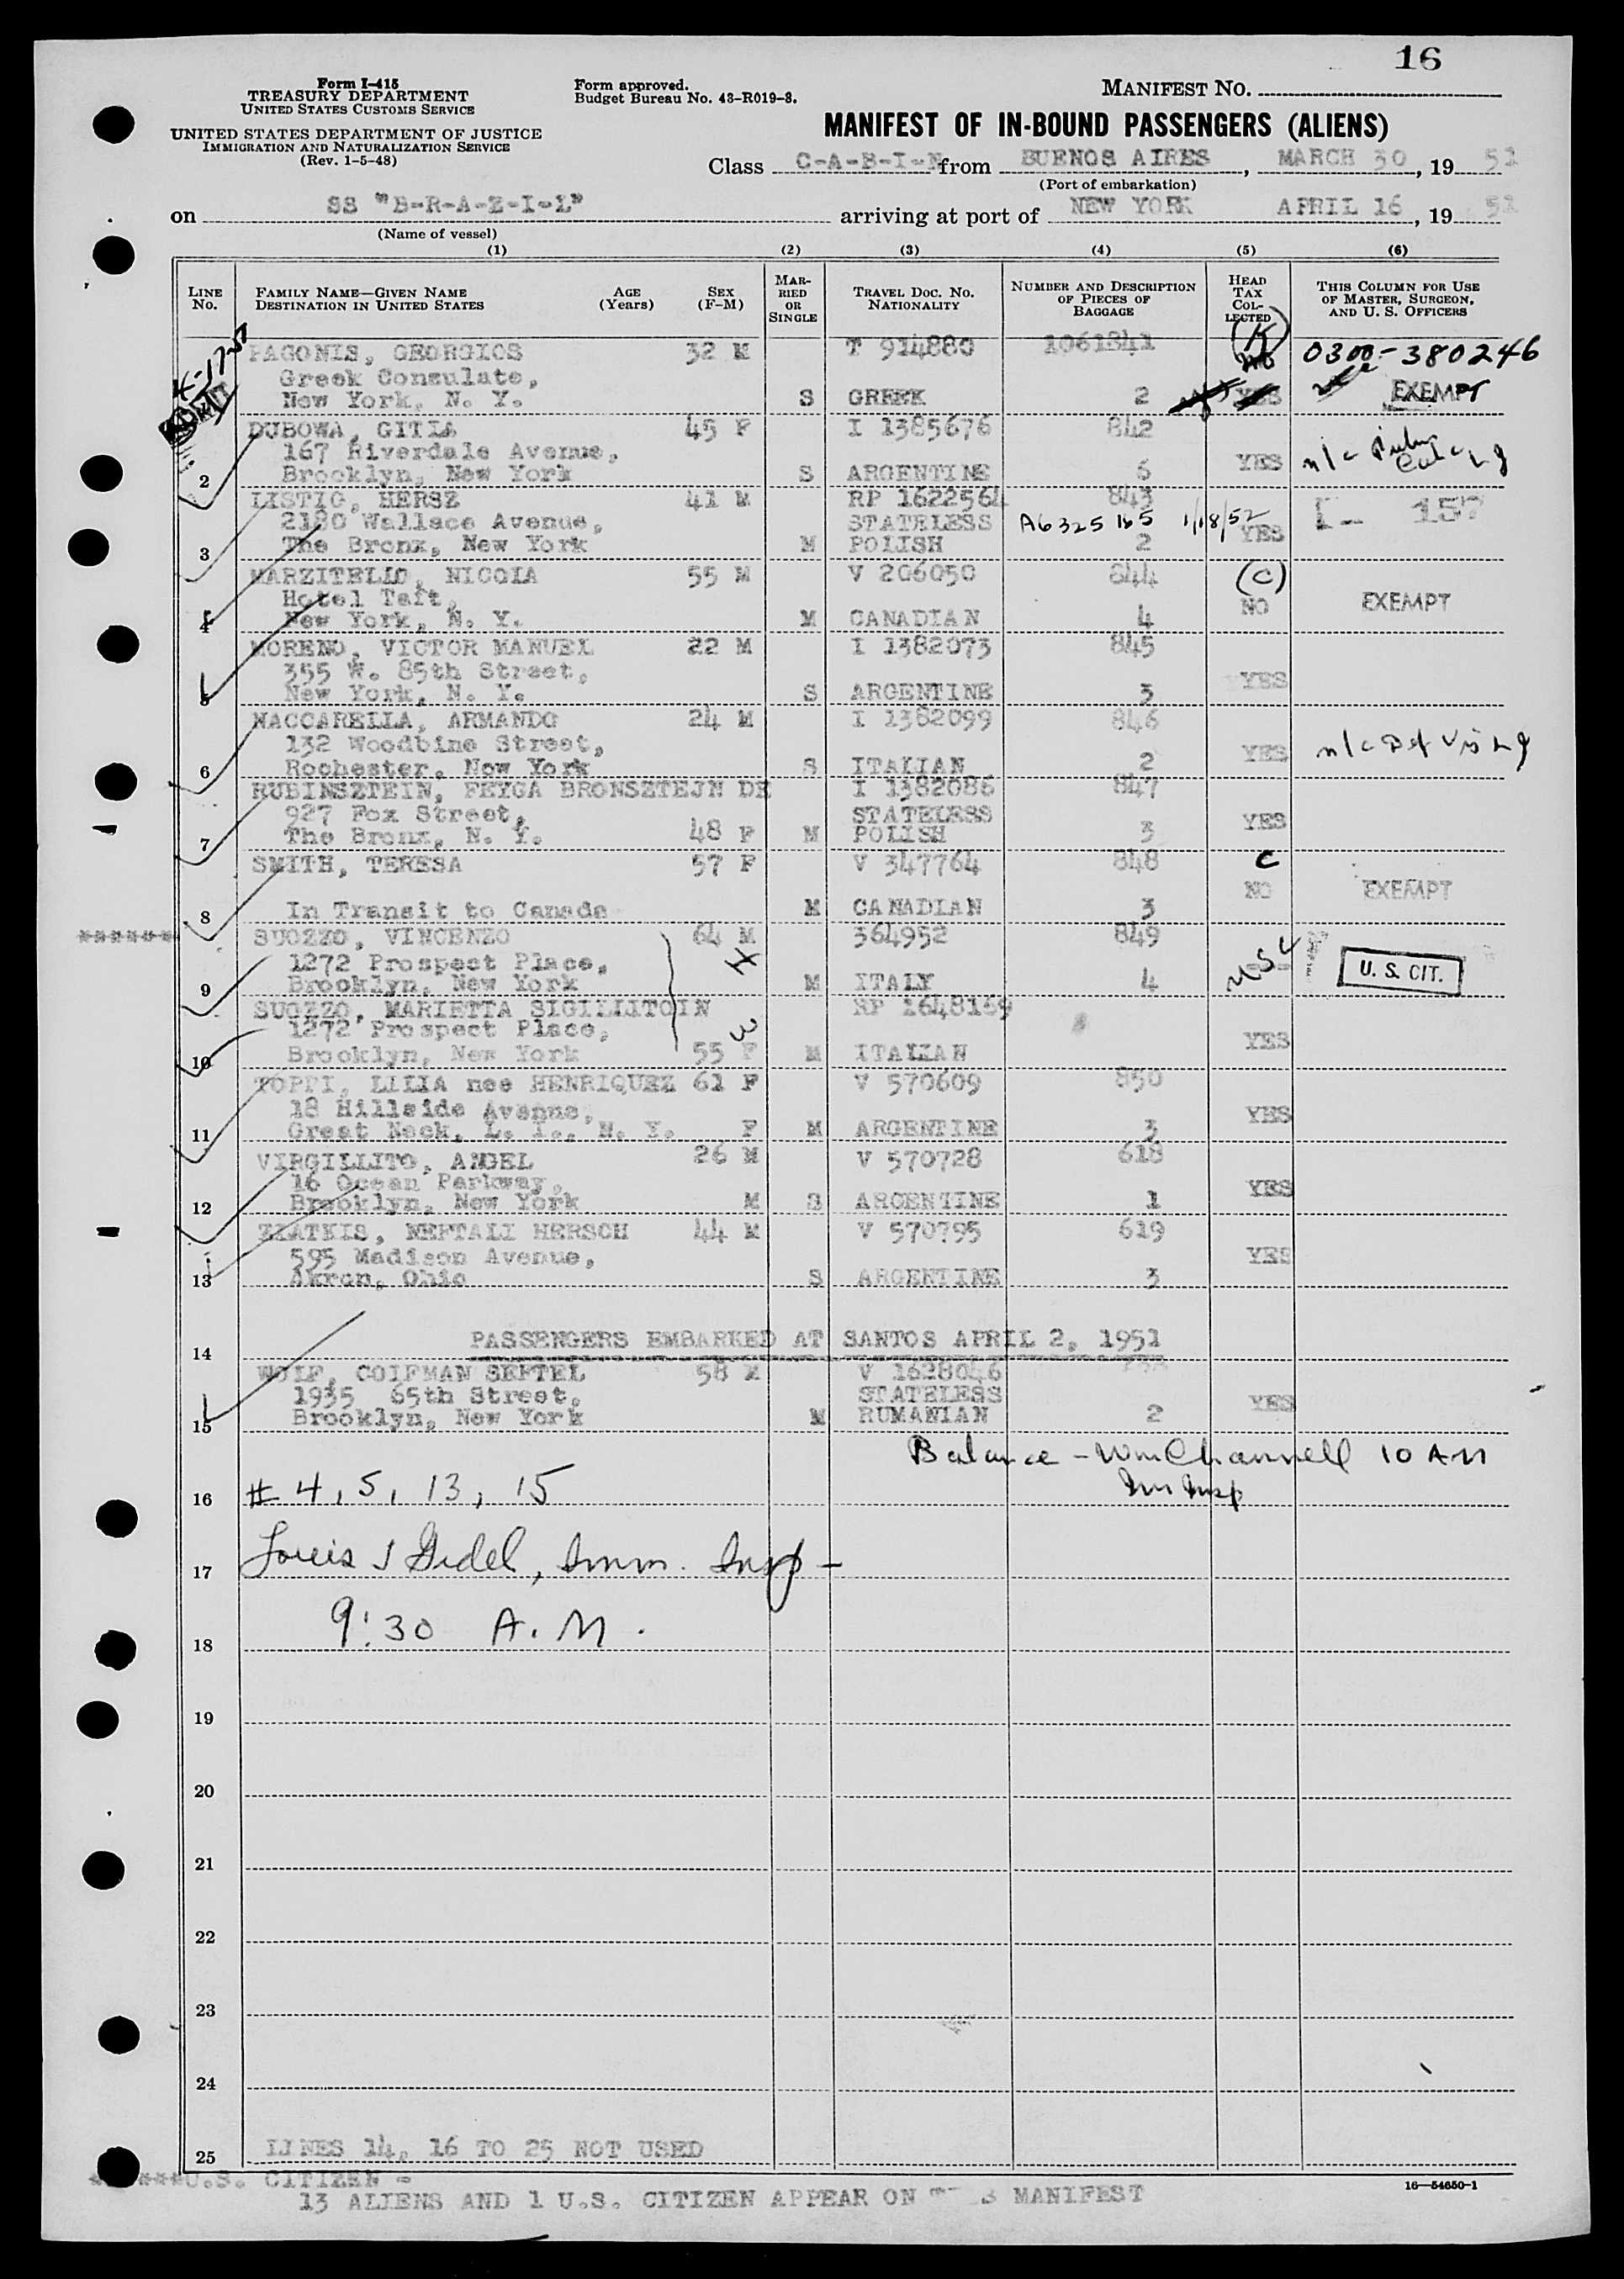 16
Form I-415
TREASURY DEPARTMENT
UNITED STATES CUSTOMS SERVICE
UNITED STATES DEPARTMENT OF JUSTICE
IMMIGRATION AND NATURALIZATION SERVICE
(Rev. 1-5-48)
Form approved.
Budget Bureau No. 43-R019-3.
MANIFEST NO.
MANIFEST OF IN-BOUND PASSENGERS (ALIENS)
Class C-A-B-I-N from BUENOS AIRES, MARCH 30, 1951
(Port of embarkation)
on SS "B-R-A-Z-I-L" arriving at port of NEW YORK APRIL 16, 1951
(Name of vessel)
(1) (2) (3) (4) (5) (6)
LINE NO.
FAMILY NAME—GIVEN NAME
DESTINATION IN UNITED STATES
AGE (Years)
SEX (F-M)
MARRIED OR SINGLE
TRAVEL DOC. NO. NATIONALITY
NUMBER AND DESCRIPTION OF PIECES OF BAGGAGE
HEAD TAX COLLECTED
THIS COLUMN FOR USE OF MASTER, SURGEON, AND U. S. OFFICERS
PAGONIS, GEORGIOS 32 M T 914880 1061841 (K) 0300-380246
Greek Consulate, no
New York, N. Y. S GREEK 2 YES EXEMPT
DUBOWA, GITLA 45 F I 1385676 842
167 Riverdale Avenue,
2 Brooklyn, New York S ARGENTINE 6 YES
LISTIG, HERSZ 41 M RP 1622564 843
2180 Wallace Avenue, STATELESS A6325165 1/18/52 I- 157
3 The Bronx, New York M POLISH 2 YES
MARZITELLO, NICOLA 55 M V 206050 844 (C)
Hotel Taft,
4 New York, N. Y. M CANADIAN 4 NO EXEMPT
MORENO, VICTOR MANUEL 22 M I 1382073 845
355 W. 85th Street,
5 New York, N. Y. S ARGENTINE 3 YES
NACCARELLA, ARMANDO 24 M I 1382099 846
132 Woodbine Street,
6 Rochester, New York S ITALIAN 2 YES
RUBINSZTEIN, FEYGA BRONSZTEJN DE I 1382086 847
927 Fox Street, STATELESS
7 The Bronx, N. Y. 48 F M POLISH 3 YES
SMITH, TERESA 57 F V 347764 848 C
8 In Transit to Canada M CANADIAN 3 NO EXEMPT
SUOZZO, VINCENZO 64 M 364952 849
1272 Prospect Place,
9 Brooklyn, New York M ITALY 4 USC U. S. CIT.
SUOZZO, MARIETTA SIGILLITOIN RP 1648169
1272 Prospect Place,
10 Brooklyn, New York 55 F M ITALIAN YES
TOPPI, LILIA nee HENRIQUEZ 61 F V 570609 850
18 Hillside Avenue,
11 Great Neck, L. I., N. Y. F M ARGENTINE 3 YES
VIRGILLITO, ANGEL 26 M V 570728 618
16 Ocean Parkway,
12 Brooklyn, New York M S ARGENTINE 1 YES
ZLATKIS, NEFTALI HERSCH 44 M V 570795 619
595 Madison Avenue,
13 Akron, Ohio S ARGENTINE 3 YES
14 PASSENGERS EMBARKED AT SANTOS APRIL 2, 1951
WOLF, COIFMAN SEFTEL 58 M V 1628046
1935 65th Street, STATELESS
15 Brooklyn, New York M RUMANIAN 2 YES
Balance - Wm Channell 10 AM
Imm Insp
16 # 4, 5, 13, 15
17 Louis J Gidel, Imm. Insp -
18 9:30 A.M.
19
20
21
22
23
24
25 LINES 14, 16 TO 25 NOT USED
U.S. CITIZEN -
13 ALIENS AND 1 U.S. CITIZEN APPEAR ON MANIFEST
16—54650-1